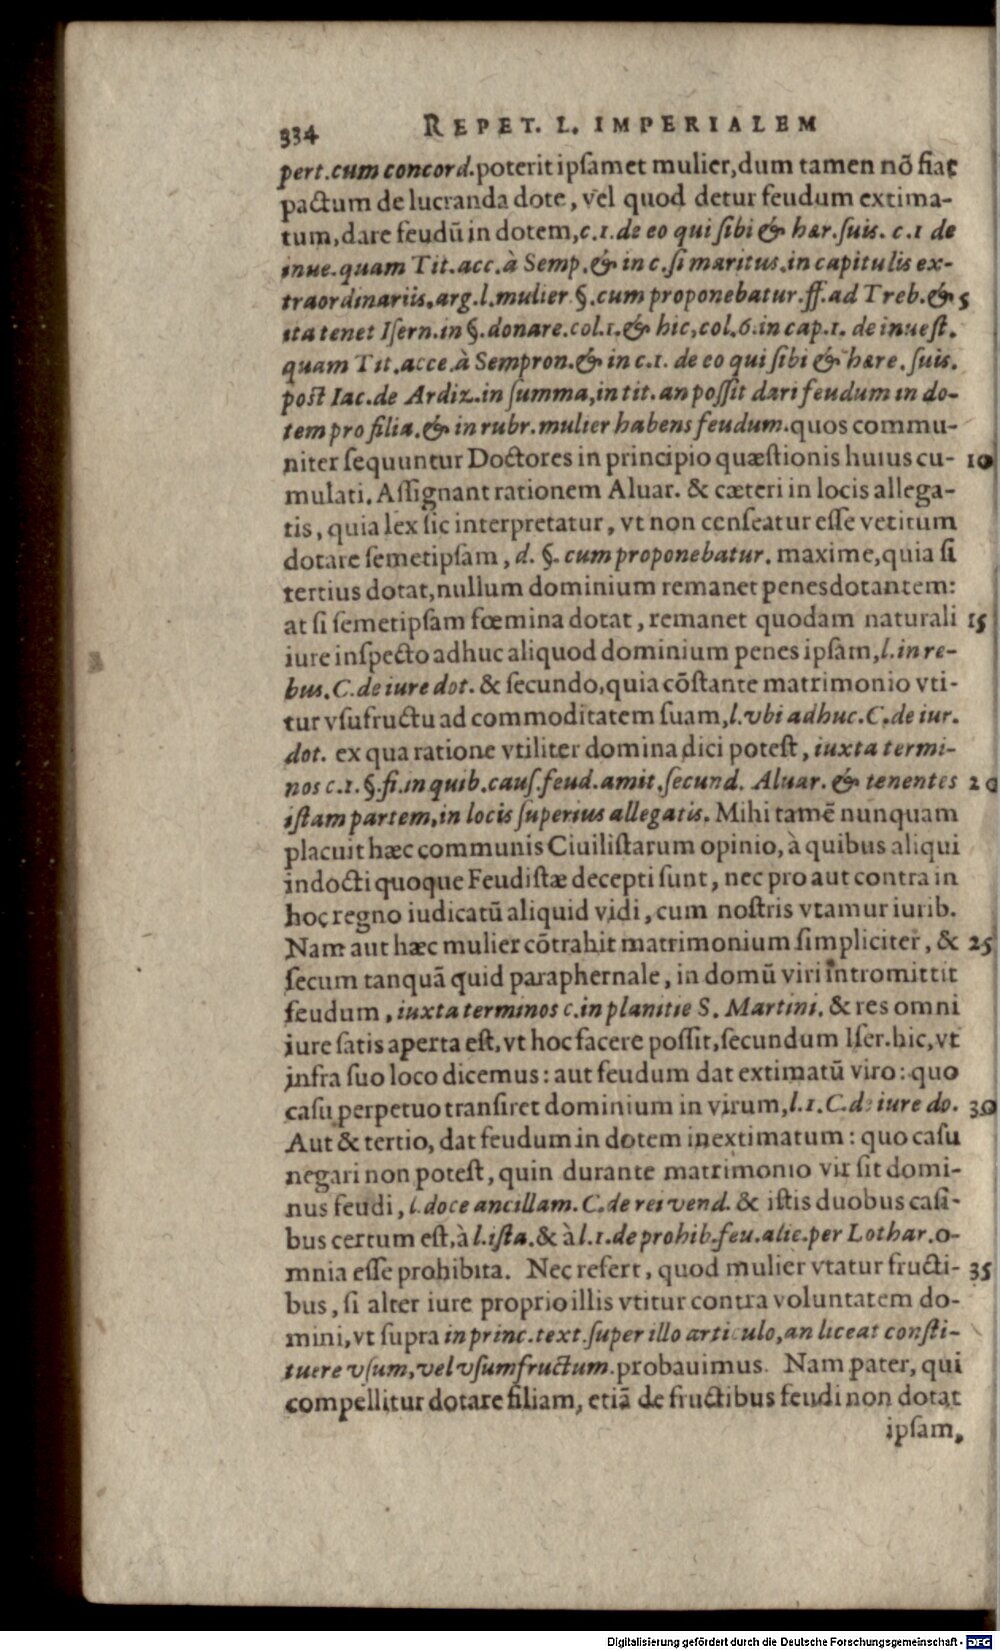 334 REPET. L. IMPERIALEM
pert. cum concord. poterit ipſamet mulier, dum tamen nõ fiat
pactum de lucranda dote, vel quod detur feudum extima-
tum, dare feudũ in dotem, c. 1. de eo qui ſibi & hær. ſuis. c. 1 de
inue. quam Tit. acc. à Semp. & in c. ſi maritus. in capitulis ex-
traordinariis. arg. l. mulier §. cum proponebatur. ff. ad Treb. & 5
ita tenet Iſern. in §. donare. col. 1. & hic, col. 6. in cap. 1. de inueſt.
quam Tit. acce. à Sempron. & in c. 1. de eo qui ſibi & hære. ſuis.
poſt Iac. de Ardiz. in ſumma, in tit. an poſſit dari feudum in do-
tem pro filia. & in rubr. mulier habens feudum. quos commu-
niter ſequuntur Doctores in principio quæſtionis huius cu- 10
mulati. Aſſignant rationem Aluar. & cæteri in locis allega-
tis, quia lex ſic interpretatur, vt non cenſeatur eſſe vetitum
dotare ſemetipſam, d. §. cum proponebatur. maxime, quia ſi
tertius dotat, nullum dominium remanet penes dotantem:
at ſi ſemetipſam fœmina dotat, remanet quodam naturali 15
iure inſpecto adhuc aliquod dominium penes ipſam, l. in re-
bus. C. de iure dot. & ſecundo, quia cõſtante matrimonio vti-
tur vſufructu ad commoditatem ſuam, l. vbi adhuc. C. de iur.
dot. ex qua ratione vtiliter domina dici poteſt, iuxta termi-
nos c. 1. §. fi. in quib. cauſ. feud. amit. ſecund. Aluar. & tenentes 20
iſtam partem, in locis ſuperius allegatis. Mihi tamẽ nunquam
placuit hæc communis Ciuiliſtarum opinio, à quibus aliqui
indocti quoque Feudiſtæ decepti ſunt, nec pro aut contra in
hoc regno iudicatũ aliquid vidi, cum noſtris vtamur iurib.
Nam aut hæc mulier cõtrahit matrimonium ſimpliciter, & 25
ſecum tanquã quid paraphernale, in domũ viri intromittit
feudum, iuxta terminos c. in planitie S. Martini. & res omni
iure ſatis aperta eſt, vt hoc facere poſſit, ſecundum Iſer. hic, vt
infra ſuo loco dicemus: aut feudum dat extimatũ viro: quo
caſu perpetuo tranſiret dominium in virum, l. 1. C. de iure do. 30
Aut & tertio, dat feudum in dotem inextimatum: quo caſu
negari non poteſt, quin durante matrimonio vir ſit domi-
nus feudi, l. doce ancillam. C. de rei vend. & iſtis duobus caſi-
bus certum eſt, à l. iſta. & à l. 1. de prohib. feu. alie. per Lothar. o-
mnia eſſe prohibita. Nec refert, quod mulier vtatur fructi- 35
bus, ſi alter iure proprio illis vtitur contra voluntatem do-
mini, vt ſupra in princ. text. ſuper illo articulo, an liceat conſti-
tuere vſum, vel vſumfructum. probauimus. Nam pater, qui
compellitur dotare filiam, etiã de fructibus feudi non dotat
ipſam,
Digitalisierung gefördert durch die Deutsche Forschungsgemeinschaft - DFG